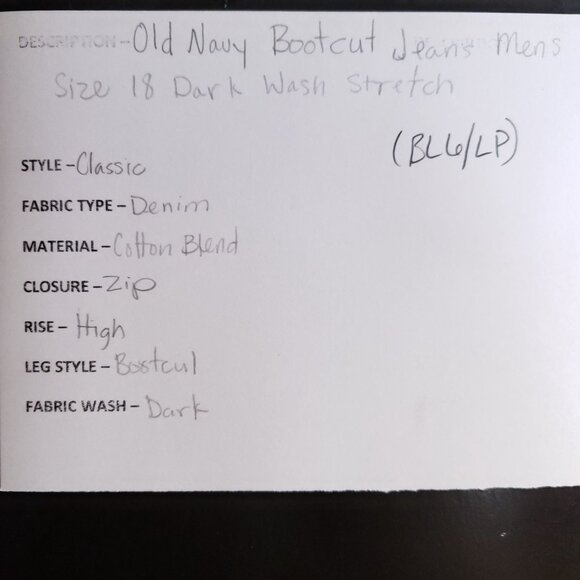 DESCRIPTION - Old Navy Bootcut Jeans Mens
Size 18 Dark Wash Stretch
(BL6/LP)
STYLE - Classic
FABRIC TYPE - Denim
MATERIAL - Cotton Blend
CLOSURE - Zip
RISE - High
LEG STYLE - Bootcut
FABRIC WASH - Dark